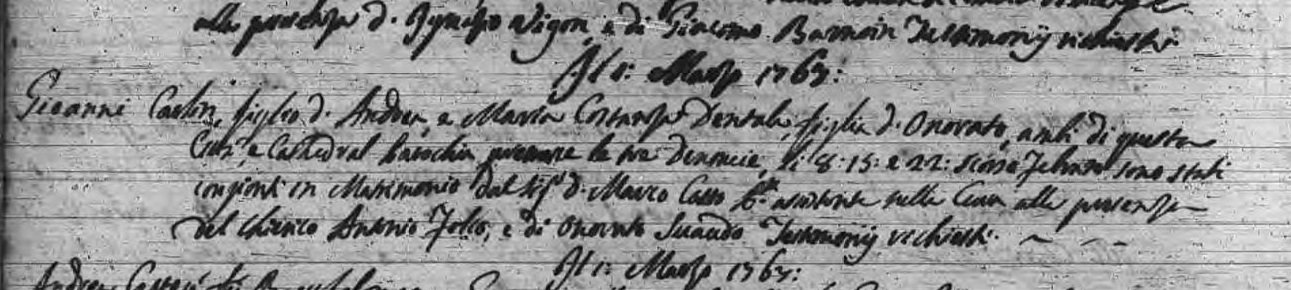 alla presenza d. Ignazio Vigon, e di Giacomo Barnoin Testimonij richiesti
Il 1: Marzo 1767:
Gioanni Caston, figlio d. Andrea, e Maria Costanza Dentale, figlia d. Onorato, ambi di questa
Città, e Cathedral Parochia, premesse le tre Denoncie, li 8: 15: e 22: scorso Febraro sono stati
congionti in Matrimonio dal Sig.r d. Marco Casto assistente nella Cura alla presenza
del chierico Antonio Folco, e di Onorato Suaudo Testimonij richiesti.
Il 1: Marzo 1767:
Andrea Caston